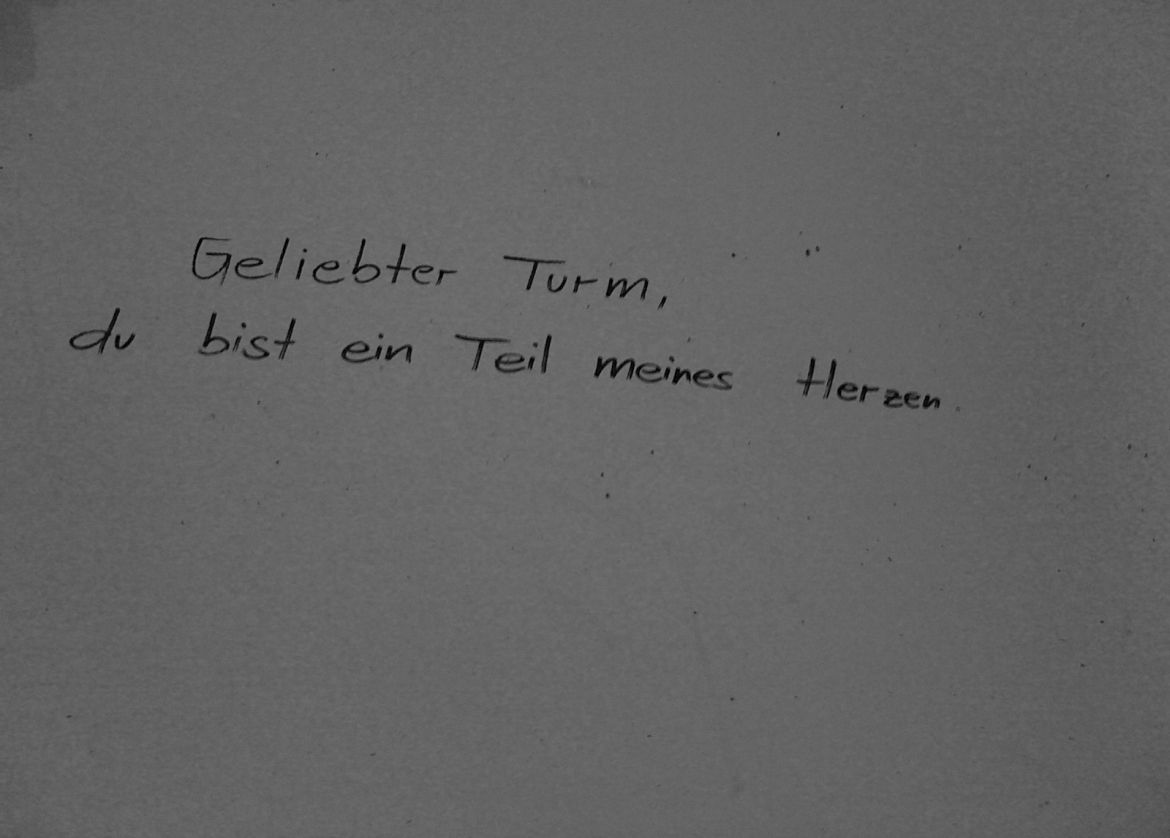 Geliebter Turm,
du bist ein Teil meines Herzen.